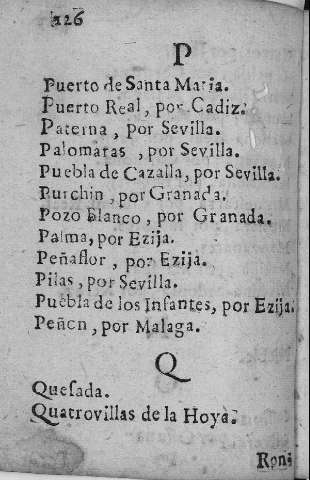 126
P
Puerto de Santa Maria.
Puerto Real, por Cadiz.
Paterna, por Sevilla.
Palomaras, por Sevilla.
Puebla de Cazalla, por Sevilla.
Purchin, por Granada.
Pozo Blanco, por Granada.
Palma, por Ezija.
Peñaflor, por Ezija.
Pilas, por Sevilla.
Puebla de los Infantes, por Ezija.
Peñen, por Malaga.
Q
Quesada.
Quatrovillas de la Hoya.
Roni